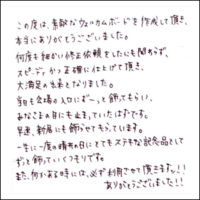 この度は、素敵なウェルカムボードを作成して頂き、
本当にありがとうございました。
何度も細かい修正依頼をしたにも関わらず、
スピーディかつ正確に仕上げて頂き、
大満足の出来となりました。
当日も会場の入口にずーっと飾ってもらい、
みなさまの目にも止まっていたはずです。
早速、新居にも飾らせてもらっています。
一生に一度の晴れの日にとてもステキな記念品として
ずっと飾っていくつもりです。
また、何かある時には、必ず利用させて頂きます!!
ありがとうございました!!